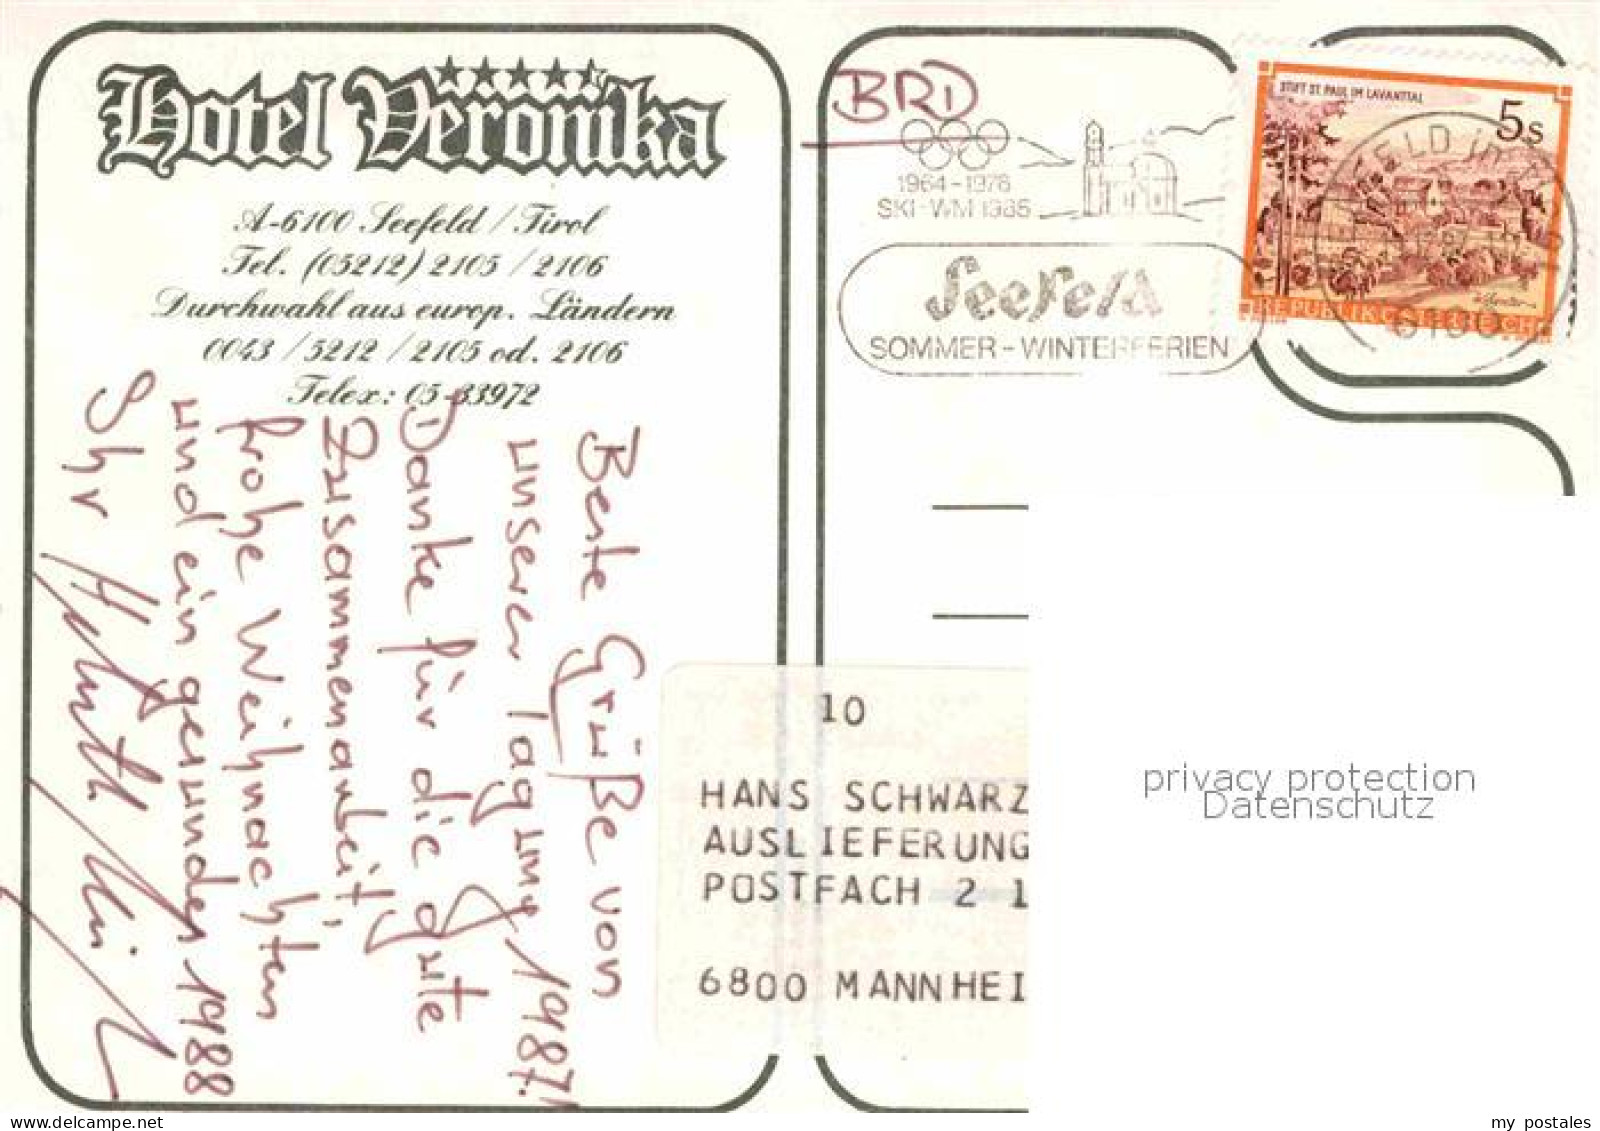 Hotel Veronika
A-6100 Seefeld / Tirol
Tel. (05212) 2105 / 2106
Durchwahl aus europ. Ländern
0043 / 5212 / 2105 od. 2106
Telex: 05-33972
Beste Grüße von
unserer Tagung 1987!
Danke für die gute
Zusammenarbeit,
frohe Weihnachten
und ein gesundes 1988
Ihr
BRD
1964-1976
SKI-WM 1985
Seefeld
SOMMER-WINTERFERIEN
STIFT ST. PAUL IM LAVANTTAL
5s
REPUBLIK ÖSTERREICH
6100
10
HANS SCHWARZ
AUSLIEFERUNG
POSTFACH 2 1
6800 MANNHEI
privacy protection
Datenschutz
my postales